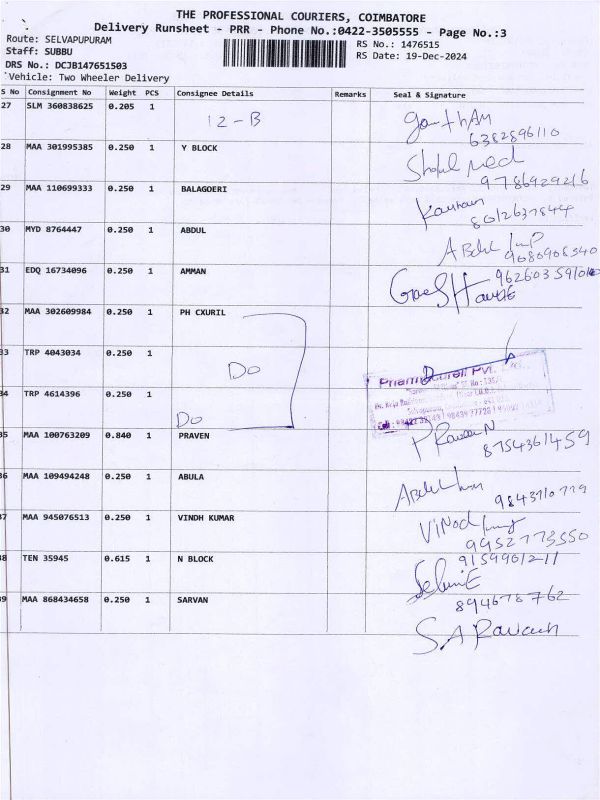 THE PROFESSIONAL COURIERS, COIMBATORE
Delivery Runsheet - PRR - Phone No.:0422-3505555 - Page No.:3
Route: SELVAPUPURAM
Staff: SUBBU
RS No.: 1476515
DRS No.: DCJB147651503
RS Date: 19-Dec-2024
Vehicle: Two Wheeler Delivery
S No Consignment No Weight PCS Consignee Details Remarks Seal & Signature
27 SLM 360838625 0.205 1 12-B GowthAM
6382896110
28 MAA 301995385 0.250 1 Y BLOCK
9786929216
29 MAA 110699333 0.250 1 BALAGOERI
8012637844
30 MYD 8764447 0.250 1 ABDUL
9080908340
31 EDQ 16734096 0.250 1 AMMAN
32 MAA 302609984 0.250 1 PH CXURIL
33 TRP 4043034 0.250 1 Do
34 TRP 4614396 0.250 1 Do
Pvt.
35 MAA 100763209 0.840 1 PRAVEN
8754361459
36 MAA 109494248 0.250 1 ABULA
9843710779
37 MAA 945076513 0.250 1 VINDH KUMAR
9952773550
38 TEN 35945 0.615 1 N BLOCK
9159961211
39 MAA 868434658 0.250 1 SARVAN
894678762